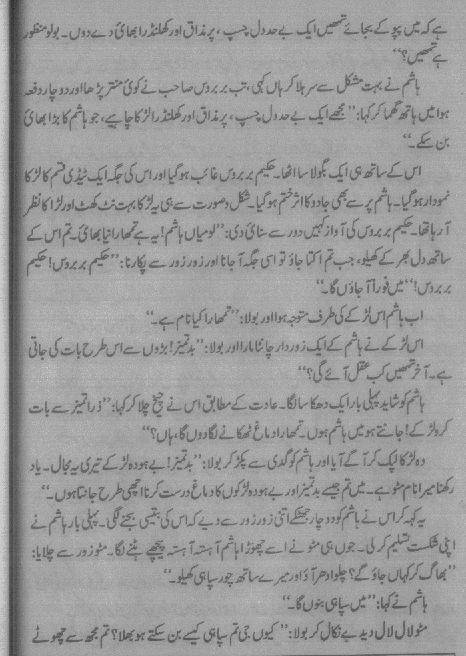 ہے کہ میں پپو کے بجائے تمھیں ایک بے حد دل چسپ، پر مذاق اور کھلنڈرا بھائ دے دوں۔ بولو منظور
ہے تمھیں؟‘‘
ہاشم نے بہت مشکل سے سر ہلا کر ہاں کہی، تب بربروس صاحب نے کوئ منتر پڑھا اور دو چار دفعہ
ہوا میں ہاتھ گھما کر کہا: ’’مجھے ایک بے حد دل چسپ، پر مذاق اور کھلنڈرا لڑکا چاہیے، جو ہاشم کا بڑا بھائ بن
سکے۔‘‘
اس کے ساتھ ہی ایک بگولا سا اٹھا۔ حکیم بربروس غائب ہوگیا اور اس کی جگہ ایک ٹیڈی قسم کا لڑکا
نمودار ہوگیا۔ ہاشم پر سے بھی جادو کا اثر ختم ہوگیا۔ شکل و صورت سے ہی یہ لڑکا بہت نٹ کھٹ اور لڑاکا نظر
آ رہا تھا۔ حکیم بربروس کی آواز کہیں دور سے سنائ دی: ’’لو میاں ہاشم! یہ ہے تمھارا نیا بھائ۔ تم اس کے
ساتھ دل بھر کے کھیلو، جب تم اکتا جاؤ تو اسی جگہ آجانا اور زور زور سے پکارنا: ’’حکیم بربروس! حکیم
بربروس!‘‘ میں فوراً آ جاؤں گا۔‘‘
اب ہاشم اس لڑکے کی طرف متوجہ ہوا اور بولا: ’’تمھارا کیا نام ہے۔‘‘
اس لڑکے نے ہاشم کے ایک زور دار چانٹا مارا اور بولا: ’’بدتمیز! بڑوں سے اس طرح بات کی جاتی
ہے۔ آخر تمھیں کب عقل آئے گی؟‘‘
ہاشم کو شاید پہلی بار ایک دھکا سا لگا۔ عادت کے مطابق اس نے چیخ چلا کر کہا: ’’ذرا تمیز سے بات
کرو لڑکے! جانتے ہو میں ہاشم ہوں۔ تمھارا دماغ ٹھکانے لگا دوں گا، ہاں؟‘‘
وہ لڑکا لپک کر آگے آیا اور ہاشم کو گدی سے پکڑ کر بولا: ’’بدتمیز! بے ہودہ لڑکے تیری یہ مجال۔ یاد
رکھنا میرا نام مٹو ہے۔ میں تم جیسے بدتمیز اور بے ہودہ لڑکوں کا دماغ درست کرنا اچھی طرح جانتا ہوں۔‘‘
یہ کہہ کر اس نے ہاشم کو دو چار جھٹکے اتنی زور زور سے دیے کہ اس کی بتیسی بجنے لگی۔ پہلی بار ہاشم نے
اپنی شکست تسلیم کر لی۔ جوں ہی مٹو نے اسے چھوڑا ہاشم آہستہ آہستہ پیچھے ہٹنے لگا۔ مٹو زور سے چلایا:
’’بھاگ کر کہاں جاؤ گے؟ چلو ادھر آؤ اور میرے ساتھ چور سپاہی کھیلو۔‘‘
ہاشم نے کہا: ’’میں سپاہی بنوں گا۔‘‘
مٹو لال لال دیدے نکال کر بولا: ’’کیوں جی تم سپاہی کیسے بن سکتے ہو بھلا؟ تم مجھ سے چھوٹے